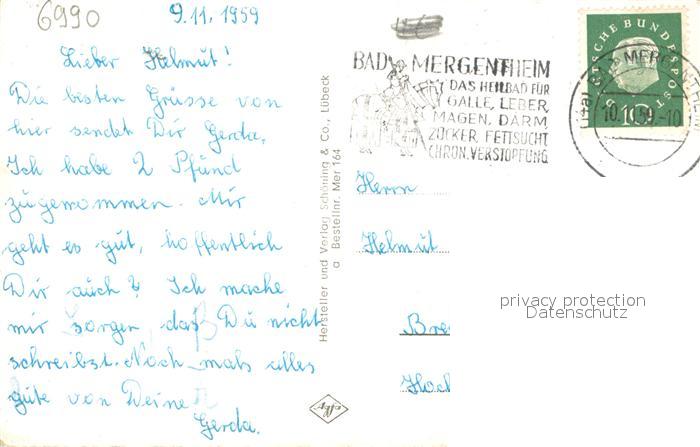 6990
9.11.1959
Lieber Helmut!
Die besten Grüsse von
hier sendet Dir Gerda.
Ich habe 2 Pfund
zugenommen. Mir
geht es gut, hoffentlich
Dir auch? Ich mache
mir sorgen, daß Du nicht
schreibst. Noch mals alles
gute von Deine
Gerda.
Hersteller und Verlag Schöning & Co., Lübeck
a Bestellnr. Mer 164
BAD MERGENTHEIM
DAS HEILBAD FÜR
GALLE, LEBER,
MAGEN, DARM,
ZUCKER, FETTSUCHT
CHRON. VERSTOPFUNG
DEUTSCHE BUNDESPOST
10
BAD MERGENTHEIM
10.11.59.-10
Herrn
Helmut
Bre
Hoch
privacy protection
Datenschutz